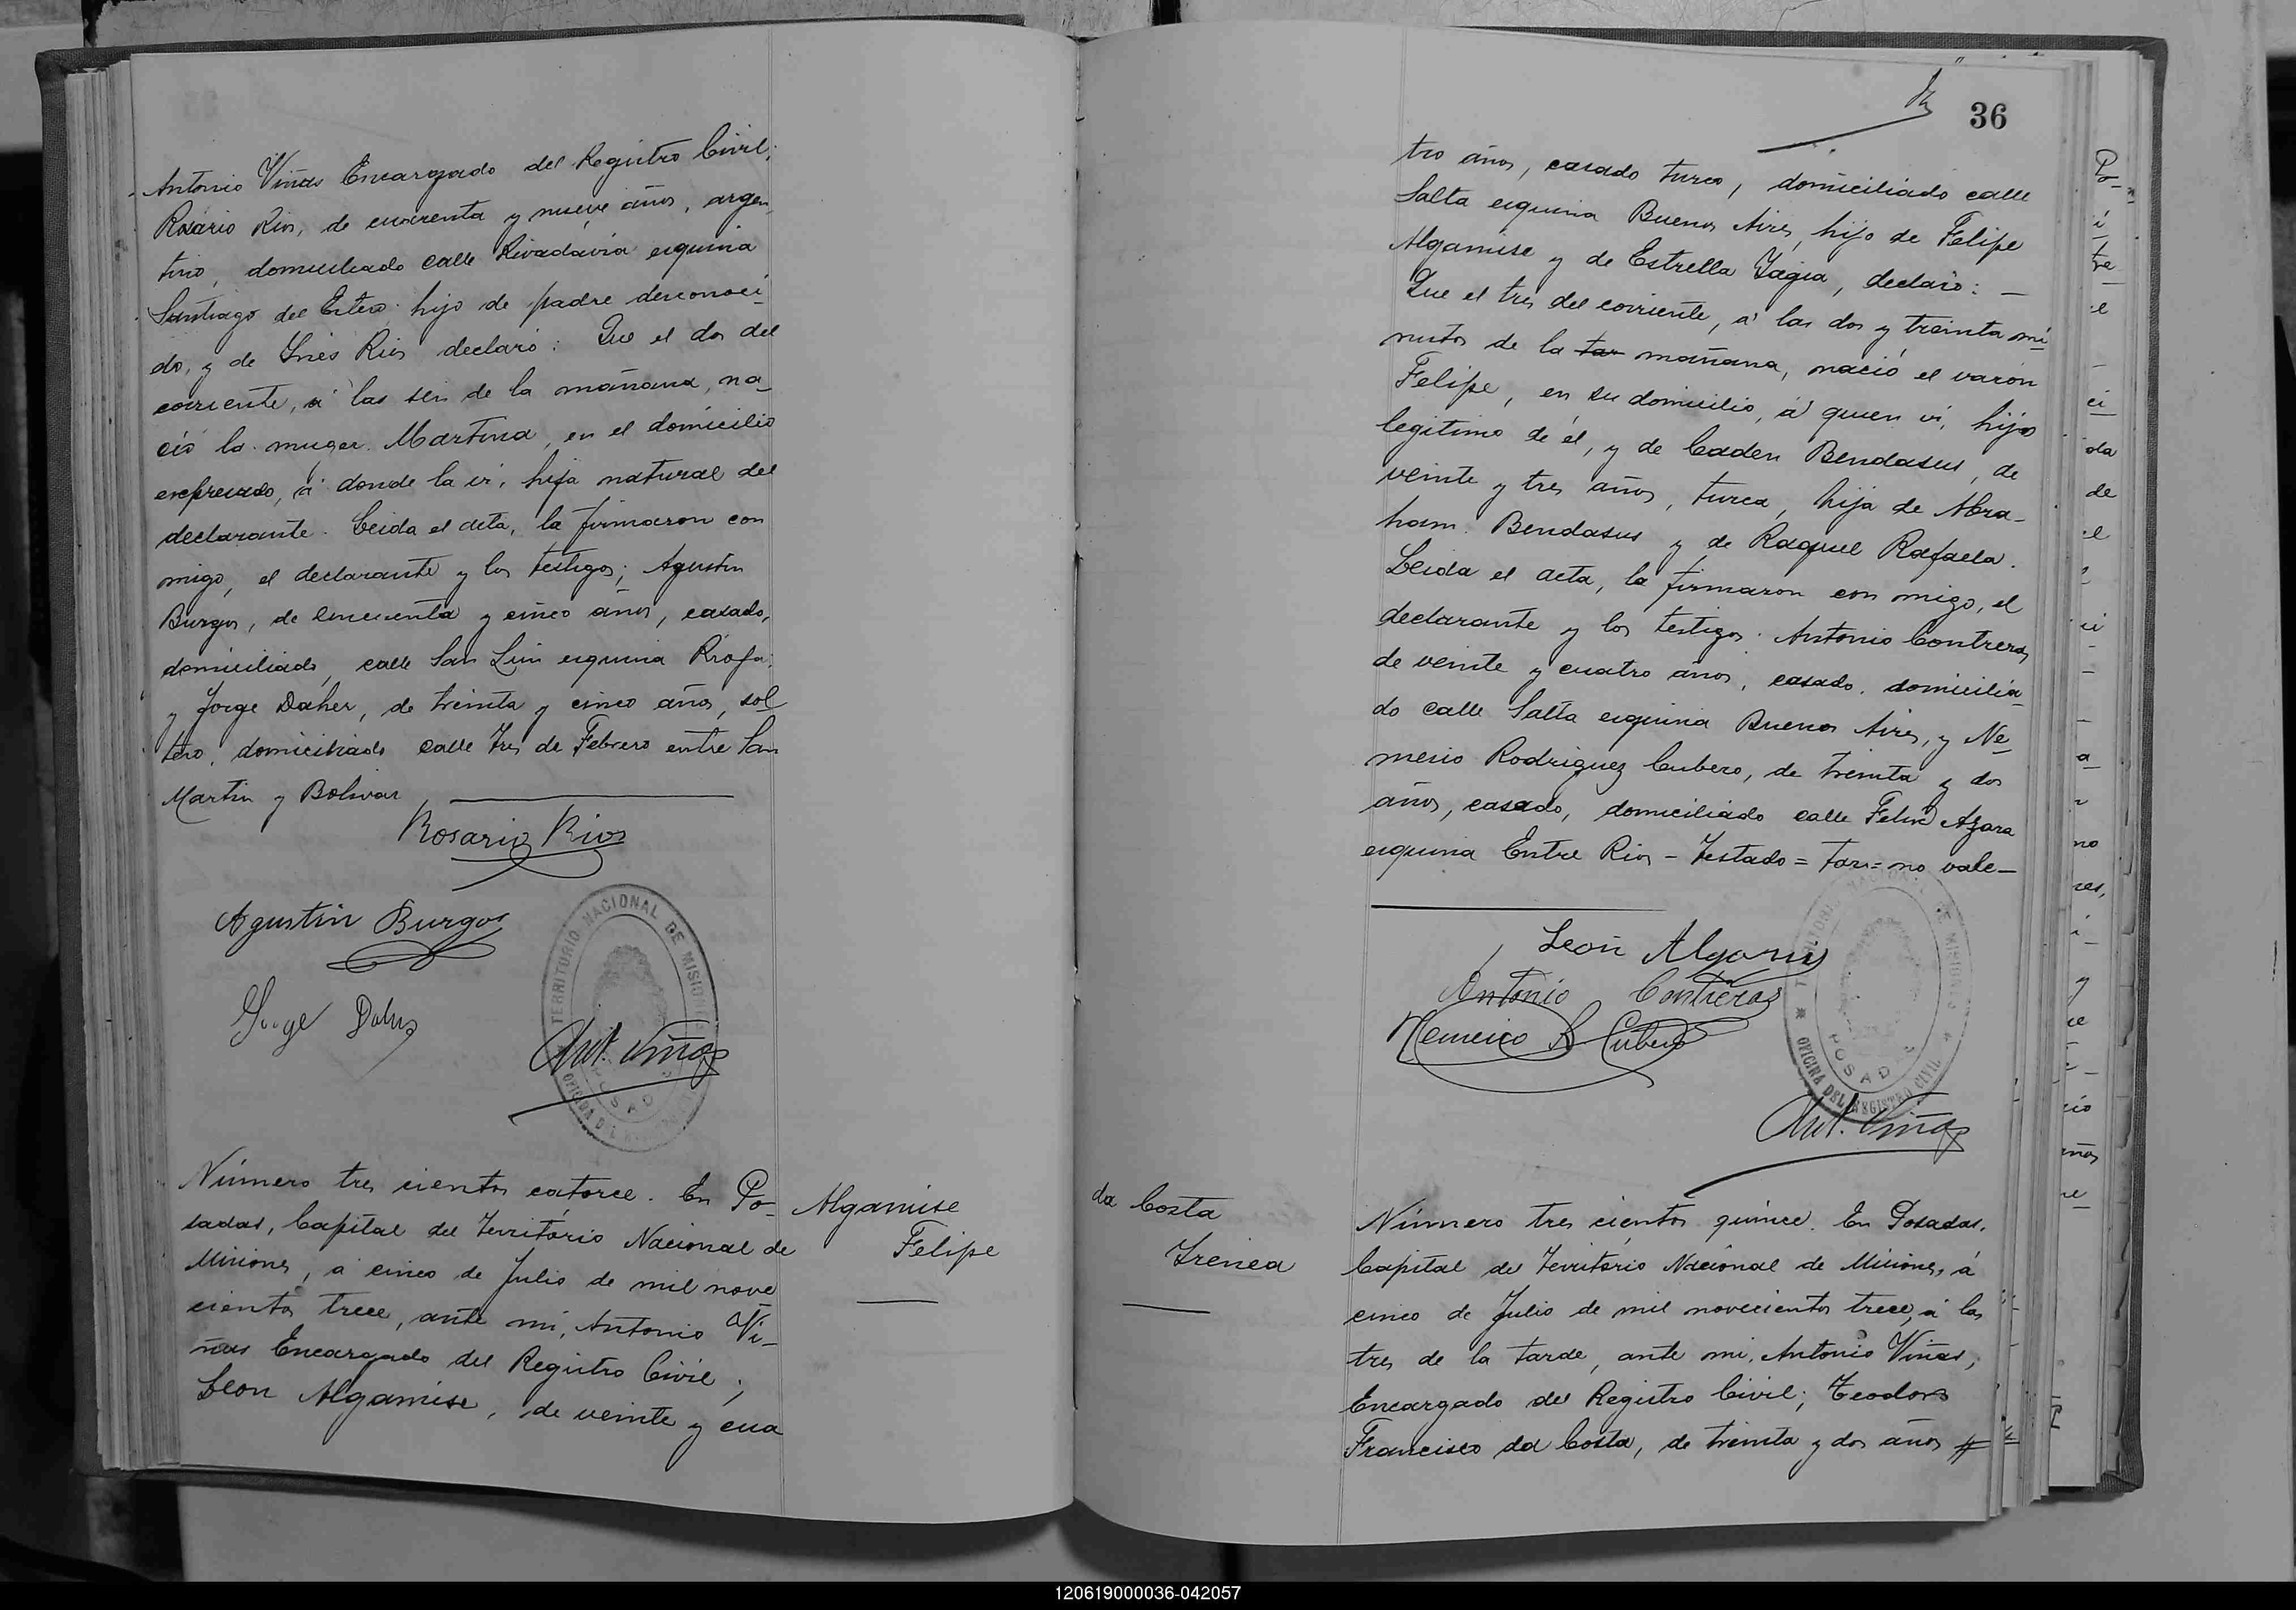 Antonio Viñas Encargado del Registro Civil;
Rosario Rios, de cuarenta y nueve años, argen
tino, domiciliado calle Rivadavia esquina
Santiago del Estero hijo de padre desconoci-
do, y de Inés Rios declaró: Que el dos del
corriente, á las seis de la mañana, na-
ció la muger Martina, en el domicilio
expresado, á donde la vi, hija natural del
declarante. Leida el acta, la firmaron con
migo, el declarante y los testigos; Agustin
Burgos, de cincuenta y cinco años, casado,
domiciliado, calle San Luis esquina Rioja
y Jorge Daher, de treinta y cinco años, sol
tero, domiciliado calle Tres de Febrero entre San
Martin y Bolivar
Rosario Rios
Agustin Burgos
Jorge
TERRITORIO NACIONAL DE MISIONES
OFICINA DEL REGISTRO CIVIL
POSADAS
Ant. Viñas
Número tres cientos catorce. En Po-
sadas, Capital del Territorio Nacional de
Misiones, á cinco de Julio de mil nove
cientos trece, ante mi, Antonio Vi-
ñas Encargado del Registro Civil;
Leon Algamise, de veinte y cua
Algamise
Felipe
36
tro años, casado turco, domiciliado calle
Salta esquina Buenos Aires, hijo de Felipe
Algamise y de Estrella Jagia, declaró: –
Que el tres del corriente, á las dos y treinta mi-
nutos de la tar mañana, nació el varon
Felipe, en su domicilio, á quien vi, hijo
legitimo de él, y de Caden Bendasus, de
veinte y tres años, turca, hija de Abra-
ham Bendasus y de Raquel Rafaela.
Leida el acta, la firmaron con migo, el
declarante y los testigos: Antonio Contreras,
de veinte y cuatro años, casado, domicilia-
do calle Salta esquina Buenos Aires, y Ne-
mesio Rodriguez Cubero, de treinta y dos
años, casado, domiciliado calle Felix Azara
esquina Entre Rios – Testado = tar = no vale –
León
Antonio Contreras
Nemesio R Cubero
TERRITORIO NACIONAL DE MISIONES
OFICINA DEL REGISTRO CIVIL
POSADAS
Ant. Viñas
da Costa
Irenea
Número tres cientos quince. En Posadas,
Capital del Territorio Nacional de Misiones, á
cinco de Julio de mil novecientos trece, á las
tres de la tarde, ante mi, Antonio Viñas,
Encargado del Registro Civil; Teodoro
Francisco da Costa, de treinta y dos años
120619000036-042057